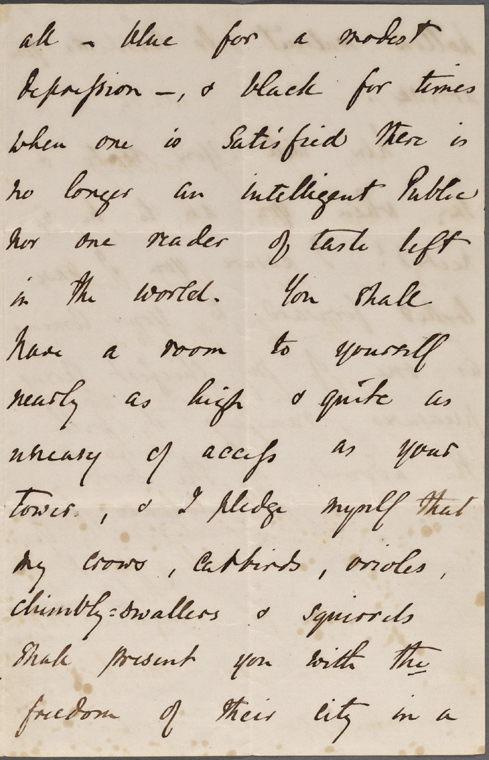 all – blue for a modest
depression –, & black for times
when one is satisfied there is
no longer an intelligent Public
nor one reader of taste left
in the world. You shall
have a room to yourself
nearly as high & quite as
uneasy of access as your
tower, & I pledge myself that
my crows, catbirds, orioles,
chimbly-swallers & squirrels
shall present you with the
freedom of their city in a